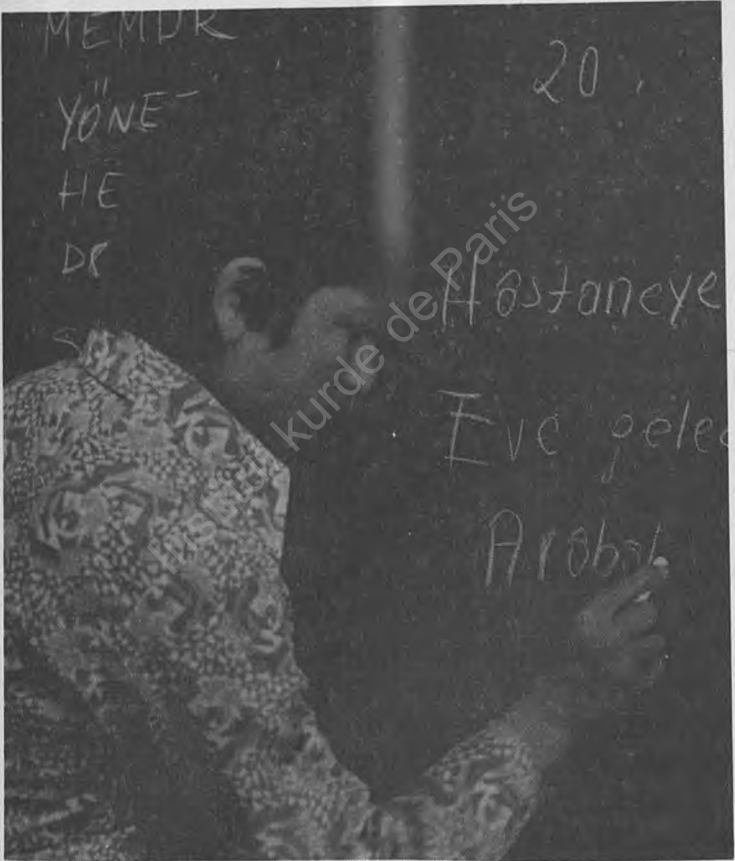 MEMUR
YÖNE-
HE
DR
S
20.
Hastaneye
Eve gelec
Arabat
Institut kurde de Paris